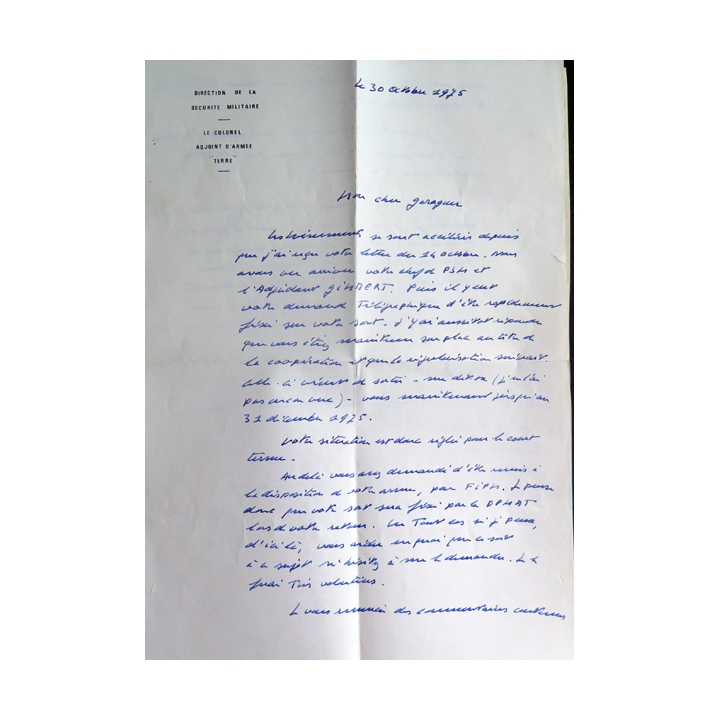 DIRECTION DE LA
SECURITE MILITAIRE
LE COLONEL
ADJOINT D'ARMEE
"TERRE"
Le 30 octobre 1975
Mon cher
Les événements se sont accélérés depuis
que j'ai reçu votre lettre du 14 octobre. Nous
avons vu arriver votre chef de PSM et
l'Adjudant GIMBERT. Puis il y eut
votre demande Télégraphique d'être rapidement
fixé sur votre sort. J'y ai aussitôt répondu
que vous étiez maintenu sur place au titre de
la coopération et que la régularisation suivrait
celle-ci vient de sortir - me dit on (je ne l'ai
pas encore vue) - vous maintenant jusqu'au
31 décembre 1975.
Votre situation est donc réglée pour le court
terme.
Au delà vous avez demandé d'être remis à
la disposition de votre arme, par FIPM. Je pense
donc que votre sort sera fixé par la DPMAT
lors de votre retour. En Tout cas si je peux,
d'ici là, vous aider en quoi que ce soit
à ce sujet n'hésitez à me le demander. Je le
ferai Très volontiers.
Je vous remercie des commentaires contenus